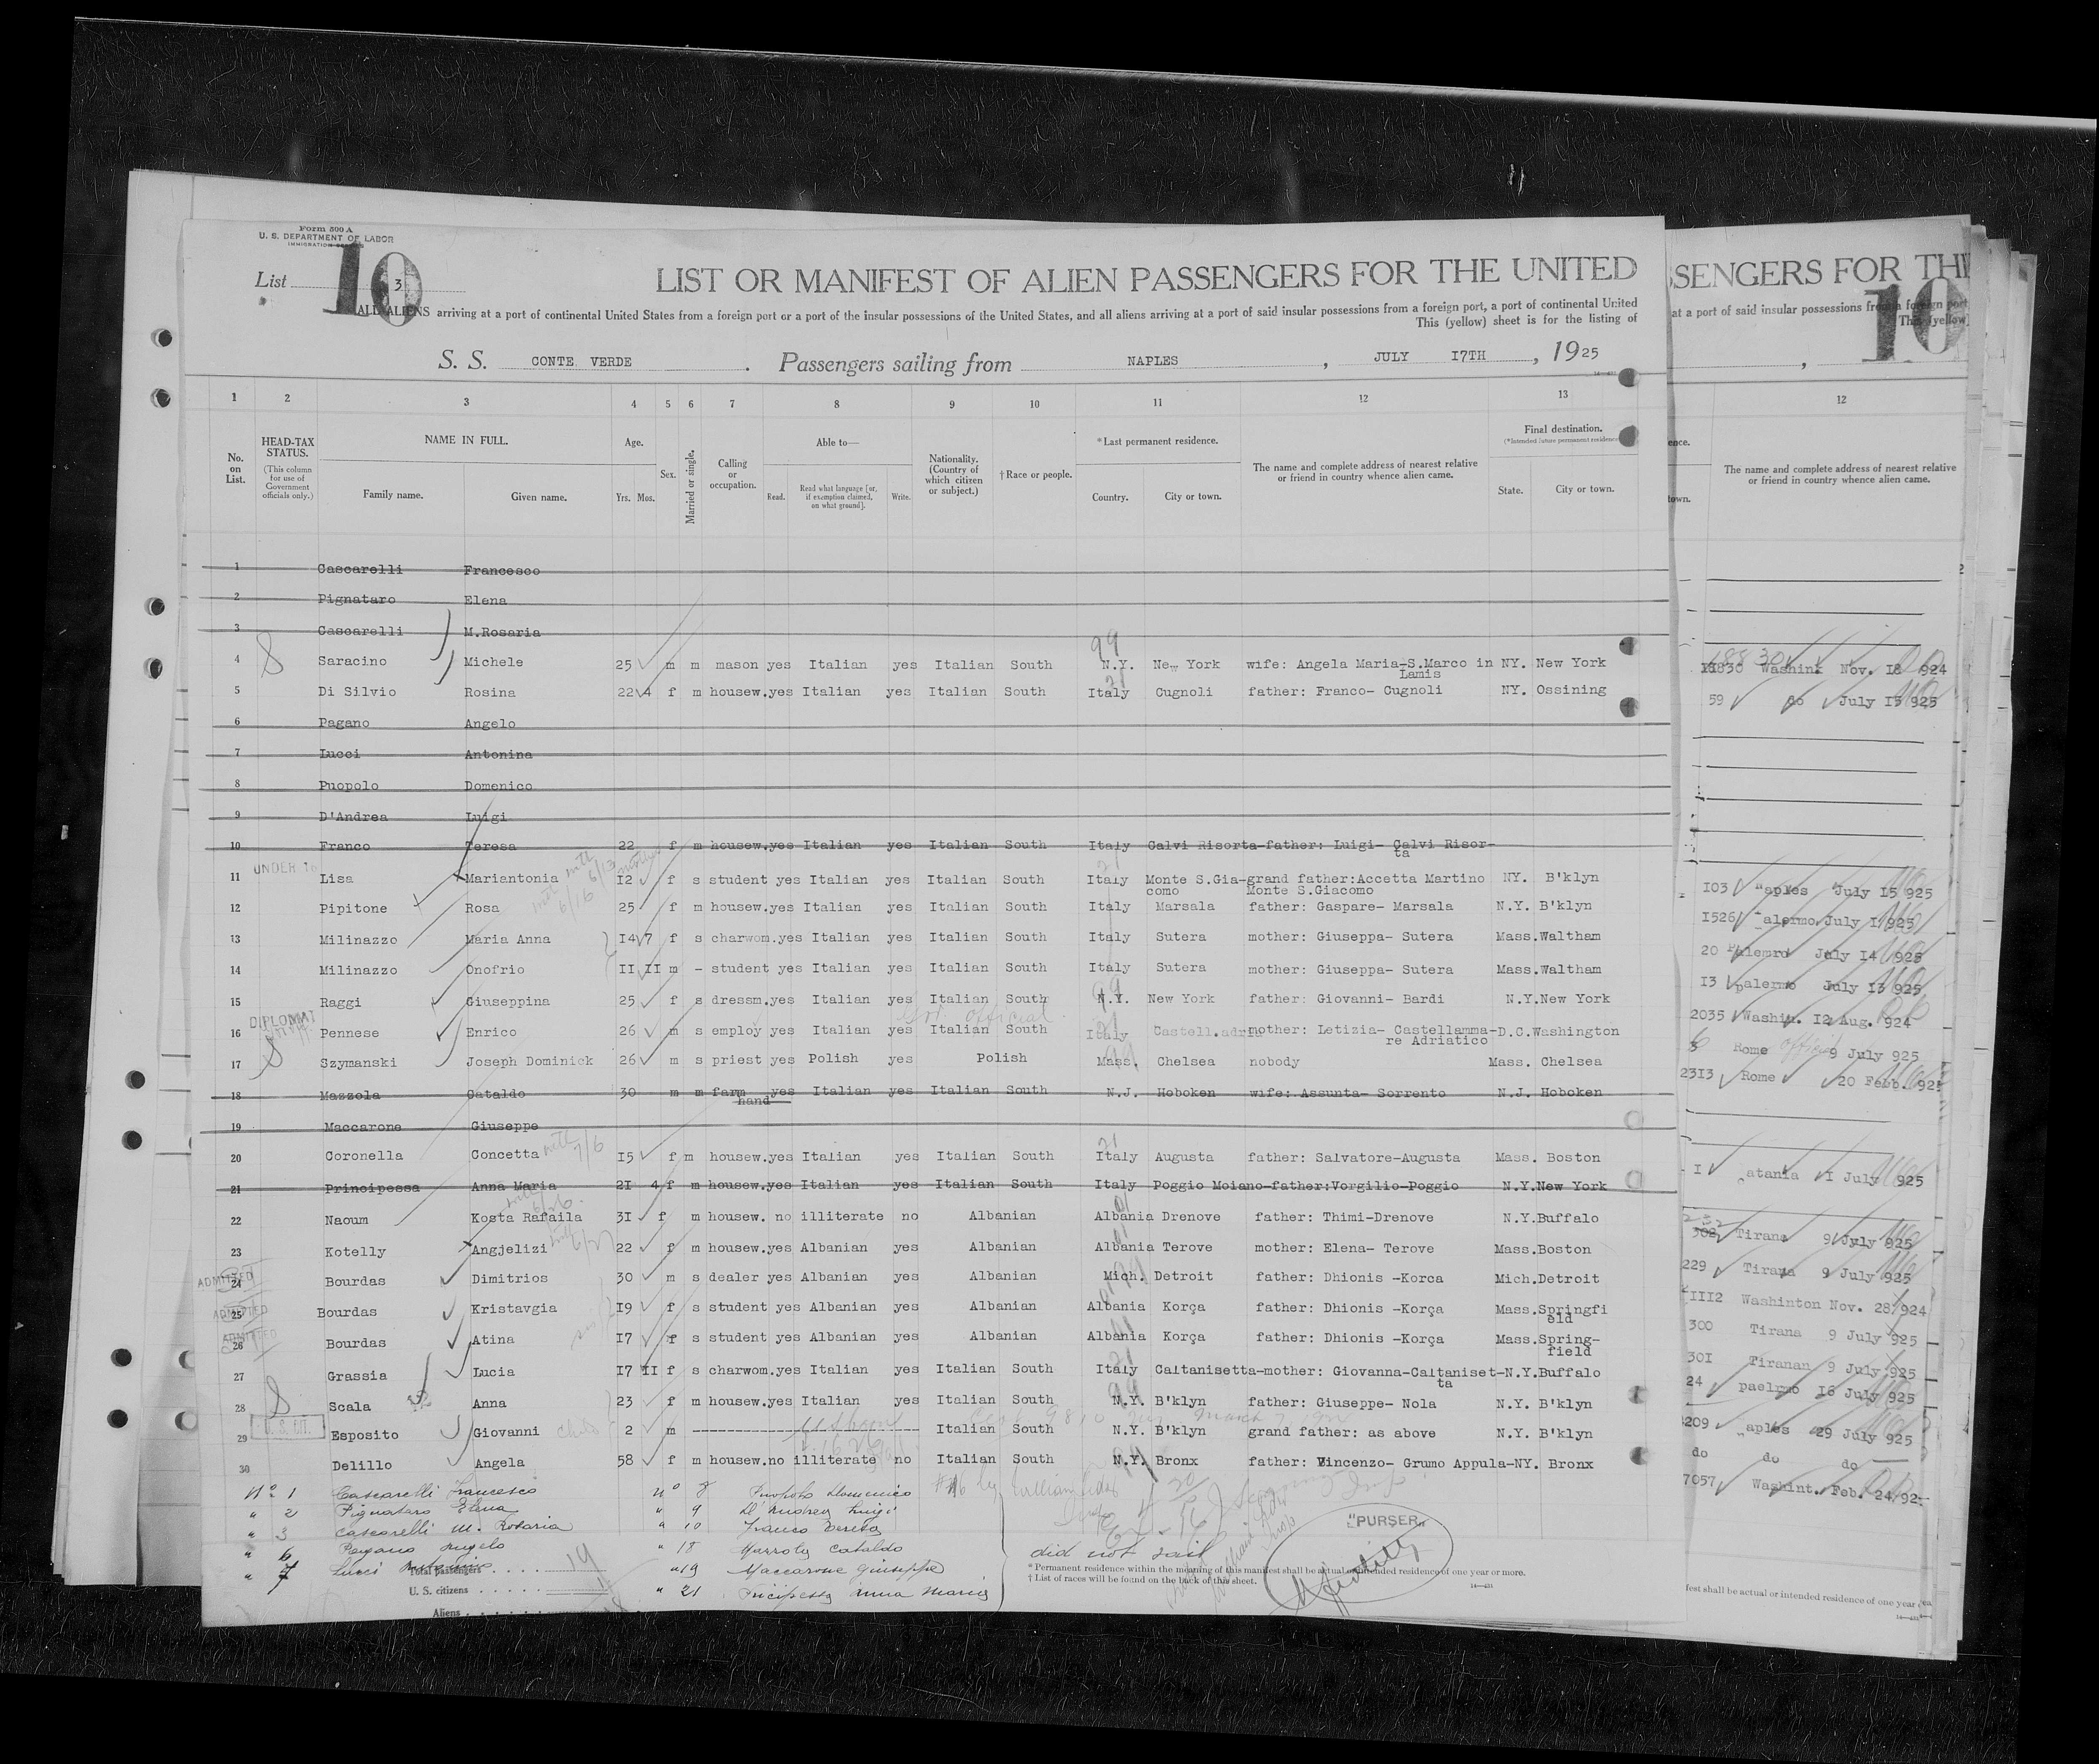 Form 500 A
U. S. DEPARTMENT OF LABOR
IMMIGRATION
List 10 3
LIST OR MANIFEST OF ALIEN PASSENGERS FOR THE UNITED
ALL ALIENS arriving at a port of continental United States from a foreign port or a port of the insular possessions of the United States, and all aliens arriving at a port of said insular possessions from a foreign port, a port of continental United
This (yellow) sheet is for the listing of
S. S. CONTE VERDE. Passengers sailing from NAPLES, JULY I7TH, 1925
1 2 3 4 5 6 7 8 9 10 11 12 13
No. on List.
HEAD-TAX STATUS.
(This column for use of Government officials only.)
NAME IN FULL.
Family name. Given name.
Age.
Yrs. Mos.
Sex.
Married or single.
Calling or occupation.
Able to—
Read. Read what language [or, if exemption claimed, on what ground]. Write.
Nationality. (Country of which citizen or subject.)
†Race or people.
*Last permanent residence.
Country. City or town.
The name and complete address of nearest relative or friend in country whence alien came.
Final destination.
(*Intended future permanent residence)
State. City or town.
1 Cascarelli Francesco
2 Pignataro Elena
3 Cascarelli M.Rosaria
99
4 Saracino Michele 25 m m mason yes Italian yes Italian South N.Y. New York wife: Angela Maria-S.Marco in NY. New York
Lamis
5 Di Silvio Rosina 22 4 f m housew.yes Italian yes Italian South Italy Cugnoli father: Franco- Cugnoli NY. Ossining
6 Pagano Angelo
7 Lucci Antonina
8 Puopolo Domenico
9 D'Andrea Luigi
10 Franco Teresa 22 f m housew.yes Italian yes Italian South Italy Calvi Risorta-father: Luigi- Calvi Risor-
ta
UNDER 16
11 Lisa Mariantonia I2 f s student yes Italian yes Italian South Italy Monte S.Gia-grand father:Accetta Martino NY. B'klyn
como Monte S.Giacomo
12 Pipitone Rosa 25 f m housew.yes Italian yes Italian South Italy Marsala father: Gaspare- Marsala N.Y. B'klyn
13 Milinazzo Maria Anna I4 7 f s charwom.yes Italian yes Italian South Italy Sutera mother: Giuseppa- Sutera Mass.Waltham
14 Milinazzo Onofrio II II m - student yes Italian yes Italian South Italy Sutera mother: Giuseppa- Sutera Mass.Waltham
15 Raggi Giuseppina 25 f s dressm.yes Italian yes Italian South N.Y. New York father: Giovanni- Bardi N.Y.New York
DIPLOMAT
Gov. official
16 Pennese Enrico 26 m s employ yes Italian yes Italian South Italy Castell.adria mother: Letizia- Castellamma-D.C.Washington
re Adriatico
17 Szymanski Joseph Dominick 26 m s priest yes Polish yes Polish Mass. Chelsea nobody Mass. Chelsea
18 Mazzola Cataldo 30 m m farm yes Italian yes Italian South N.J. Hoboken wife: Assunta- Sorrento N.J. Hoboken
hand
19 Maccarone Giuseppe
20 Coronella Concetta I5 f m housew.yes Italian yes Italian South Italy Augusta father: Salvatore-Augusta Mass. Boston
21 Principessa Anna Maria 2I 4 f m housew.yes Italian yes Italian South Italy Poggio Moiano-father:Vorgilio-Poggio N.Y.New York
22 Naoum Kosta Rafaila 3I f m housew. no illiterate no Albanian Albania Drenove father: Thimi-Drenove N.Y.Buffalo
23 Kotelly Angjelizi 22 f m housew.yes Albanian yes Albanian Albania Terove mother: Elena- Terove Mass.Boston
ADMITTED
24 Bourdas Dimitrios 30 m s dealer yes Albanian yes Albanian Mich. Detroit father: Dhionis -Korca Mich.Detroit
ADMITTED
25 Bourdas Kristavgia I9 f s student yes Albanian yes Albanian Albania Korça father: Dhionis -Korça Mass.Springfi
eld
ADMITTED
26 Bourdas Atina I7 f s student yes Albanian yes Albanian Albania Korça father: Dhionis -Korça Mass.Spring-
field
27 Grassia Lucia I7 II f s charwom.yes Italian yes Italian South Italy Caltanisetta-mother: Giovanna-Caltaniset-N.Y.Buffalo
ta
28 Scala Anna 23 f m housew.yes Italian yes Italian South N.Y. B'klyn father: Giuseppe- Nola N.Y. B'klyn
U. S. CIT.
29 Esposito Giovanni child 2 m Italian South N.Y. B'klyn grand father: as above N.Y. B'klyn
30 Delillo Angela 58 f m housew.no illiterate no Italian South N.Y. Bronx father: Vincenzo- Grumo Appula-NY. Bronx
No 1 Cascarelli Francesco
" 2 Pignataro Elena
" 3 Cascarelli M. Rosaria
" 6 Pagano Angelo
" 7 Lucci Antonina
No 8 Puopolo Domenico
" 9 D'Andrea Luigi
" 10 Franco Teresa
" 18 Mazzola Cataldo
" 19 Maccarone Giuseppe
" 21 Principessa Anna Maria
did not sail
"PURSER"
Total passengers . . . . 19
U. S. citizens . . . . .
Aliens . . . . .
*Permanent residence within the meaning of this manifest shall be actual or intended residence of one year or more.
†List of races will be found on the back of this sheet.
14—431
SSENGERS FOR THE
10
at a port of said insular possessions from a foreign port
This (yellow)
12
ence.
town.
The name and complete address of nearest relative or friend in country whence alien came.
18830 Washink Nov. I8 924
59 do July I5 925
I03 "aples July I5 925
I526 alermo July I 925
20 Palemro July I4 925
I3 palermo July I3 925
2035 Washin. I2 Aug. 924
Rome official 9 July 925
23I3 Rome 20 Febb. 925
I atania I July 925
302 Tirana 9 July 925
229 Tirana 9 July 925
III2 Washinton Nov. 28 924
300 Tirana 9 July 925
30I Tiranan 9 July 925
24 paelrmo I6 July 925
209 aples 29 July 925
do do do
7057 Washint. Feb. 24 92-
fest shall be actual or intended residence of one year